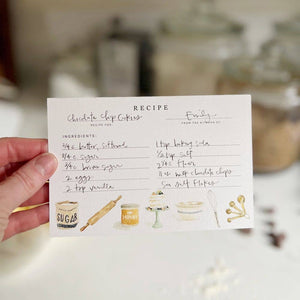 RECIPE
Chocolate Chip Cookies
Emily
RECIPE FOR
FROM THE KITCHEN OF
INGREDIENTS:
3/4 c butter, softened
1 tsp baking soda
3/4 c sugar
1/2 tsp salt
3/4 c brown sugar
2 1/4 c flour
2 eggs
milk chocolate chips
2 tsp vanilla
Sea salt flakes
SUGAR
HONEY